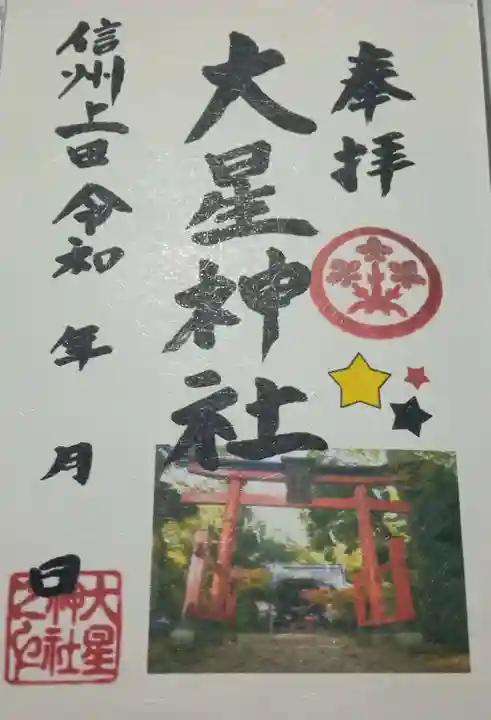 奉拝
大星神社
信州上田 令和 年 月 日
大星
神社
之印